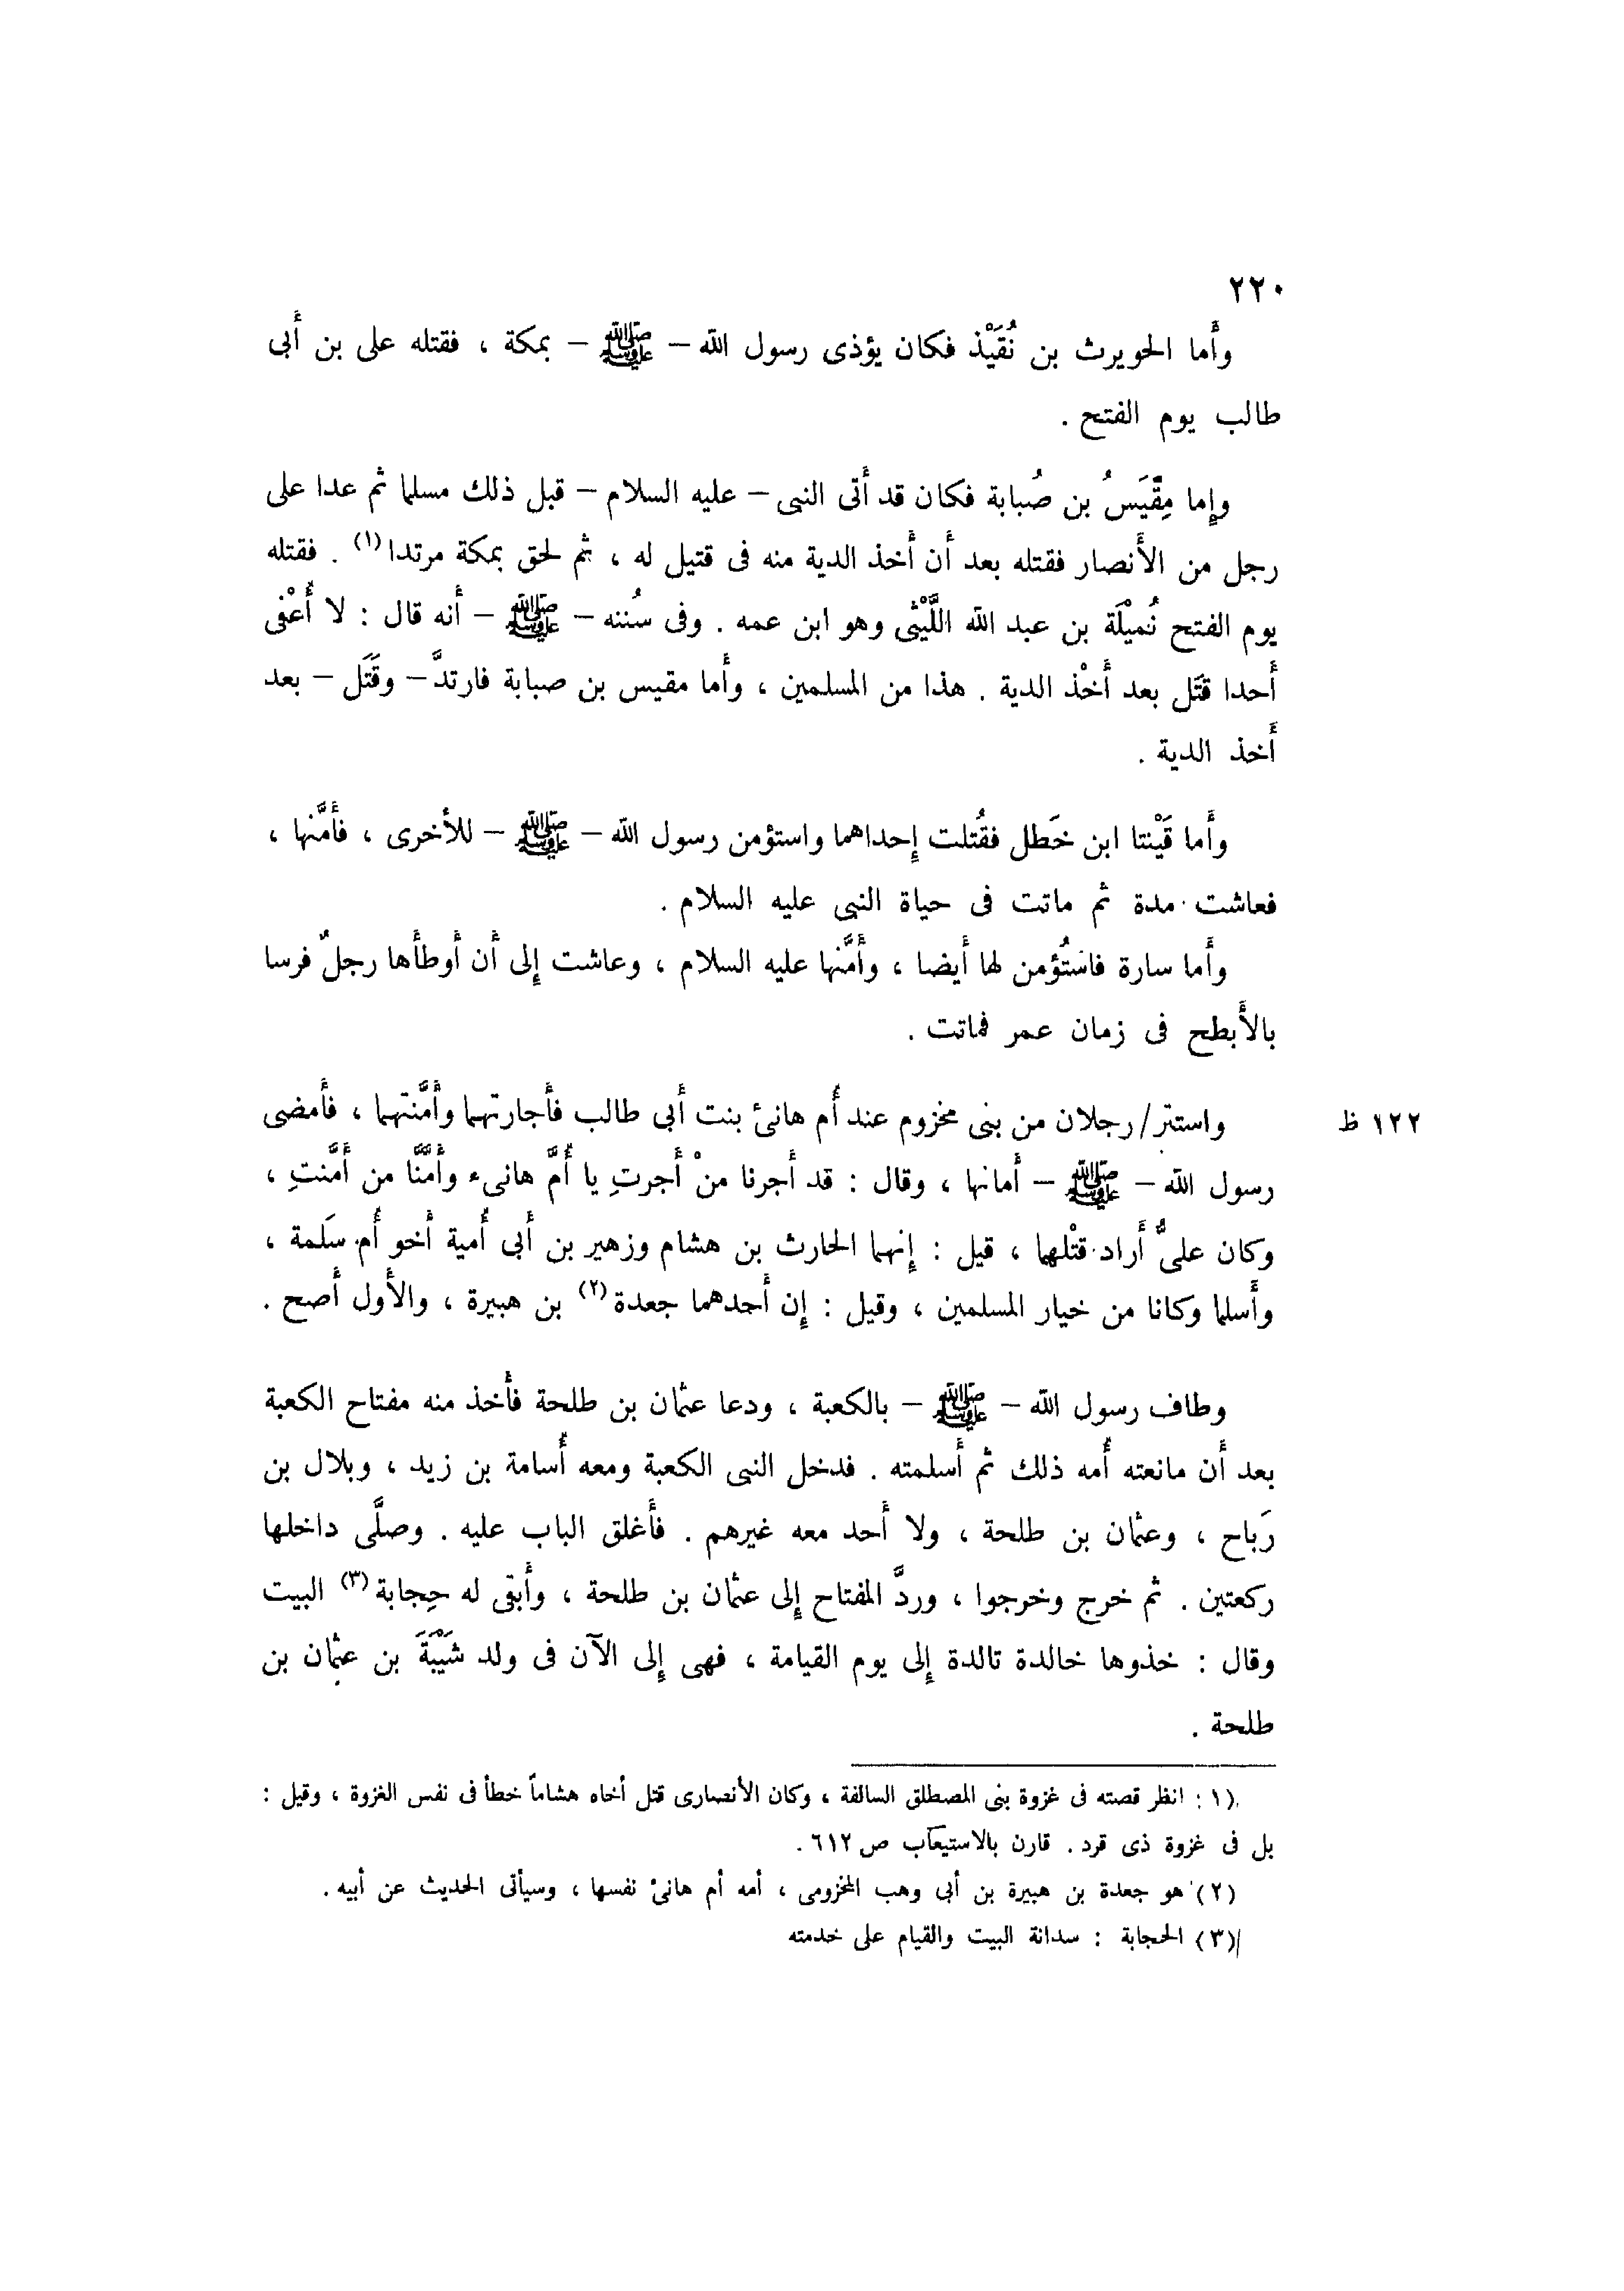 ٢٢٠
وأَما الحويرث بن نُقَيْذ فكان يؤذى رسول الله – ﷺ – بمكة ، فقتله على بن أَبى
طالب يوم الفتح .
وإِما مِقْيَسُ بن صُبابة فكان قد أَتى النبى – عليه السلام – قبل ذلك مسلما ثم عدا على
رجل من الأَنصار فقتله بعد أَن أَخذ الدية منه فى قتيل له ، ثم لحق بمكة مرتدا (١) . فقتله
يوم الفتح نُمَيْلَة بن عبد الله اللَّيْثى وهو ابن عمه . وفى سُننه – ﷺ – أَنه قال : لا أُعْفى
أَحدا قَتَل بعد أَخْذ الدية . هذا من المسلمين ، وأَما مقيس بن صبابة فارتدَّ – وقَتَل – بعد
أَخذ الدية .
وأَما قَيْنتا ابن خَطل فقُتلت إِحداهما واستؤمن رسول الله – ﷺ – للأُخرى ، فأَمَّنها ،
فعاشت مدة ثم ماتت فى حياة النبى عليه السلام .
وأَما سارة فاستُؤمن لها أَيضا ، وأَمَّنها عليه السلام ، وعاشت إِلى أَن أَوطأَها رجلٌ فرسا
بالأَبطح فى زمان عمر فماتت .
واستتر/رجلان من بنى مخزوم عند أُم هانئ بنت أَبى طالب فأَجارتهما وأَمَّنتهما ، فأَمضى ١٢٢ ظ
رسول الله – ﷺ – أَمانها ، وقال : قد أَجرنا منْ أَجرتِ يا أُمَّ هانىء وأَمَّنَّا من أَمَّنتِ ،
وكان علىٌّ أَراد قتْلهما ، قيل : إِنهما الحارث بن هشام وزهير بن أَبى أُمية أَخو أُم سَلمة ،
وأَسلما وكانا من خيار المسلمين ، وقيل : إِن أَحدهما جعدة (٢) بن هبيرة ، والأَول أَصح .
وطاف رسول الله – ﷺ – بالكعبة ، ودعا عثمان بن طلحة فأَخذ منه مفتاح الكعبة
بعد أَن مانعته أُمه ذلك ثم أَسلمته . فدخل النبى الكعبة ومعه أُسامة بن زيد ، وبلال بن
رَباح ، وعثمان بن طلحة ، ولا أَحد معه غيرهم . فأَغلق الباب عليه . وصلَّى داخلها
ركعتين . ثم خرج وخرجوا ، وردَّ المفتاح إِلى عثمان بن طلحة ، وأَبقى له حِجابة (٣) البيت
وقال : خذوها خالدة تالدة إِلى يوم القيامة ، فهى إِلى الآن فى ولد شَيْبَةَ بن عثمان بن
طلحة .
(١) انظر قصته فى غزوة بنى المصطلق السالفة ، وكان الأنصارى قتل أخاه هشاماً خطأ فى نفس الغزوة ، وقيل :
بل فى غزوة ذى قرد . قارن بالاستيعاب ص ٦١٢ .
(٢) هو جعدة بن هبيرة بن أبى وهب المخزومى ، أمه أم هانئ نفسها ، وسيأتى الحديث عن أبيه .
(٣) الحجابة : سدانة البيت والقيام على خدمته